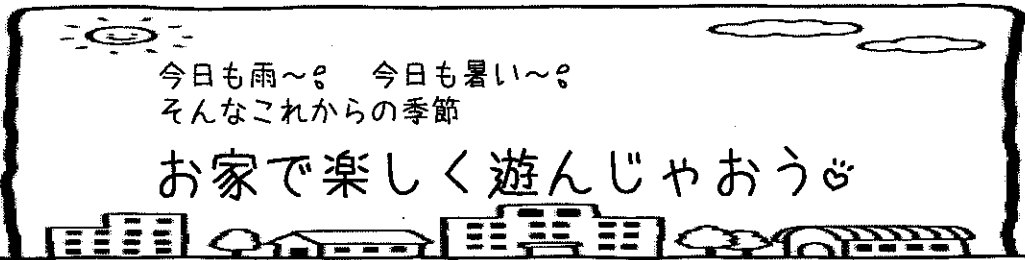 今日も雨～ 今日も暑い～
そんなこれからの季節
お家で楽しく遊んじゃおう